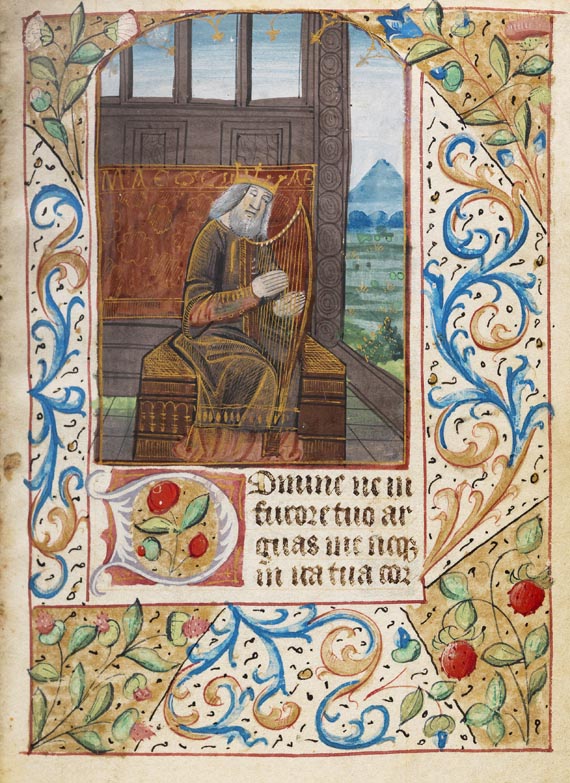 Domine ne in
furore tuo ar
guas me neqz
in ira tua cor